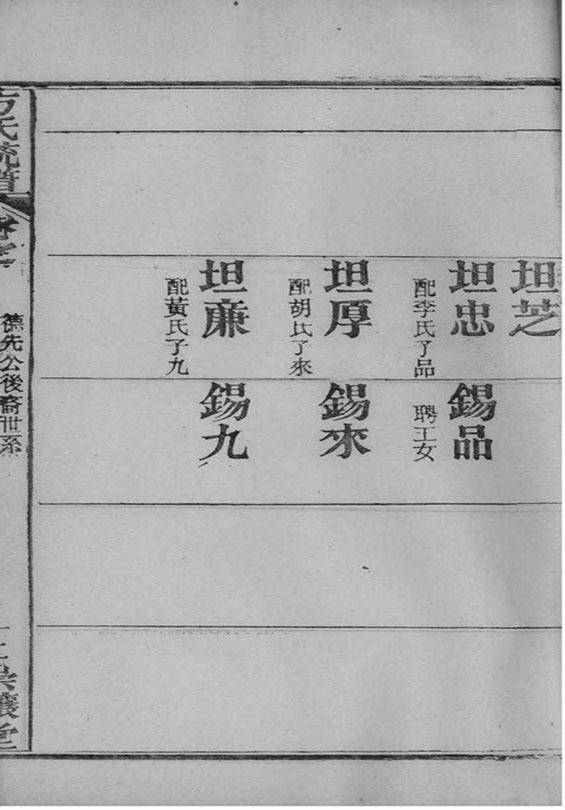 坦芝
坦忠
配李氏子品
錫品
聘王女
坦厚
配胡氏子來
錫來
坦廉
配黃氏子九
錫九
方氏統譜
德先公後裔世系